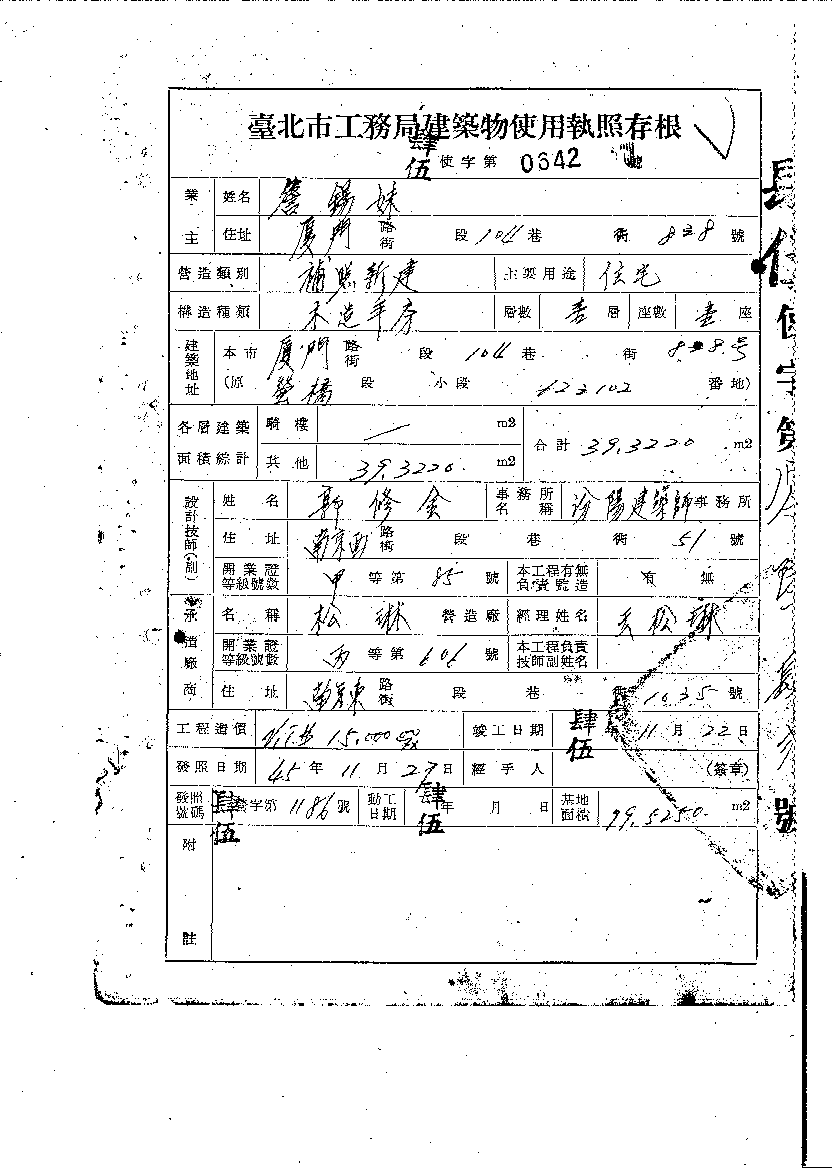 臺北市工務局建築物使用執照存根
肆伍使字第0642
業主 姓名 詹錫妹
住址 厦門路街 段104巷 街 號
營造類別 補照新建 主要用途 住宅
構造種類 木造平房 層數 壹層 座數 壹座
建築地址 本市 厦門路街 段104巷 街 号
(原 螢橋 段 小段 番地)
各層建築面積綜計 騎樓 m2 合計 39.3220 m2
其他 39.3220 m2
設計技師(副) 姓名 郭修金 事務所名稱 汾陽建築師事務所
住址 南京西路街 段 巷 街 51號
開業證等級號數 甲等第85號 本工程有無負責監造 有 無
承造廠商 名稱 松琳 營造廠 經理姓名 松琳
開業證等級號數 丙等第606號 本工程負責技師副姓名
住址 南京東路街 段 巷 1035號
工程造價 15,000 竣工日期 肆伍年11月22日
發照日期 45年11月27日 經手人 (簽章)
發照號碼 肆伍營字第1186號 動工日期 肆伍年 月 日 基地面積 79.5250 m2
附註
肆伍使字第 號